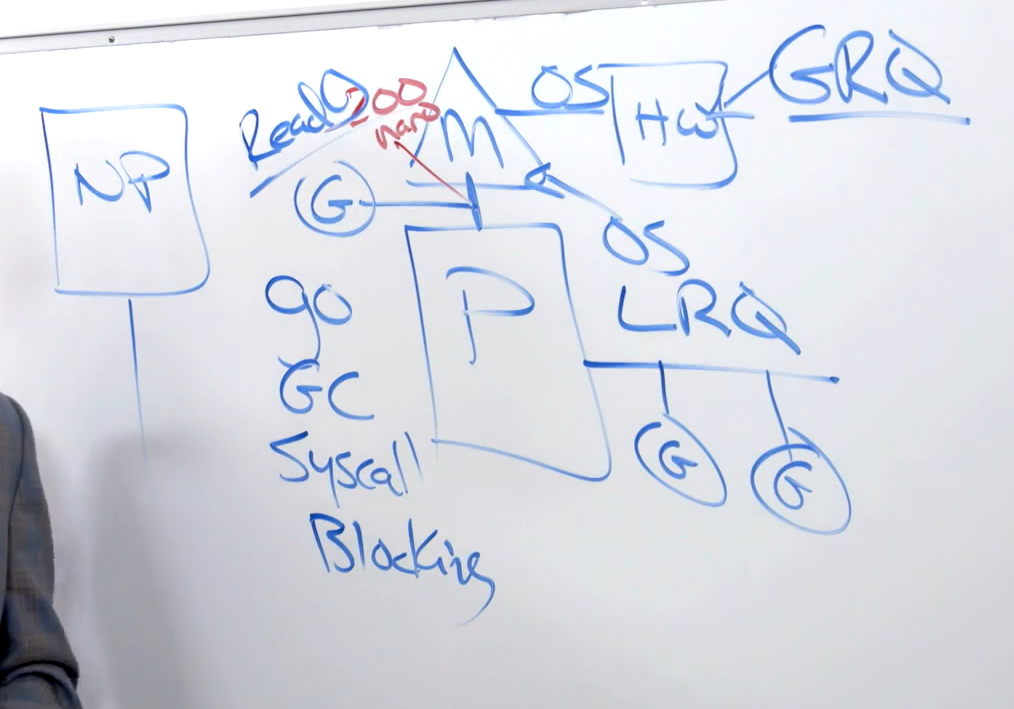 NP
Read()
200
nano
M
OS
HW
GRQ
G
OS
P
LRQ
go
GC
Syscall
Blocking
G
G